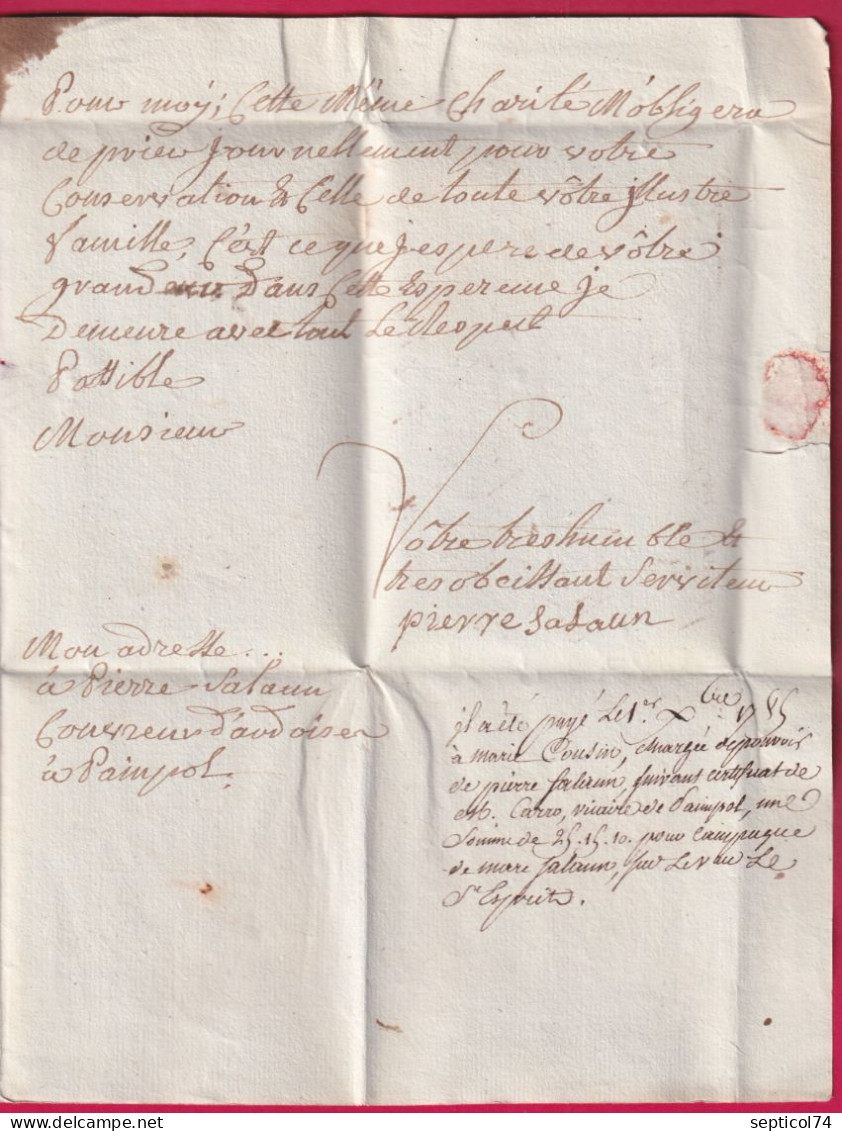 Pour moy; Cette Même Charité M'obligera
de prier Journellement pour votre
Conservation & Celle de toute vôtre illustre
famille, C'est ce que j'espere de vôtre
grandeur Dans Cette Esperence je
Demeure avec tout Le Respect
Possible
Monsieur
Vôtre tres humble &
tres obeissant Serviteur
pierre Salaun
Mon adresse...
à Pierre Salaun
Couvreur d'ardoises
à Paimpol.
il a été payé Le 1er Xbre 1785
à marie Cousin, chargée de pouvoir
de pierre Salaun, suivant certificat de
M. Carro, vicaire de Paimpol, une
Somme de 25.15.10. pour Campagne
de marc Salaun, sur Le vau Le
St Esprit.
septicol74